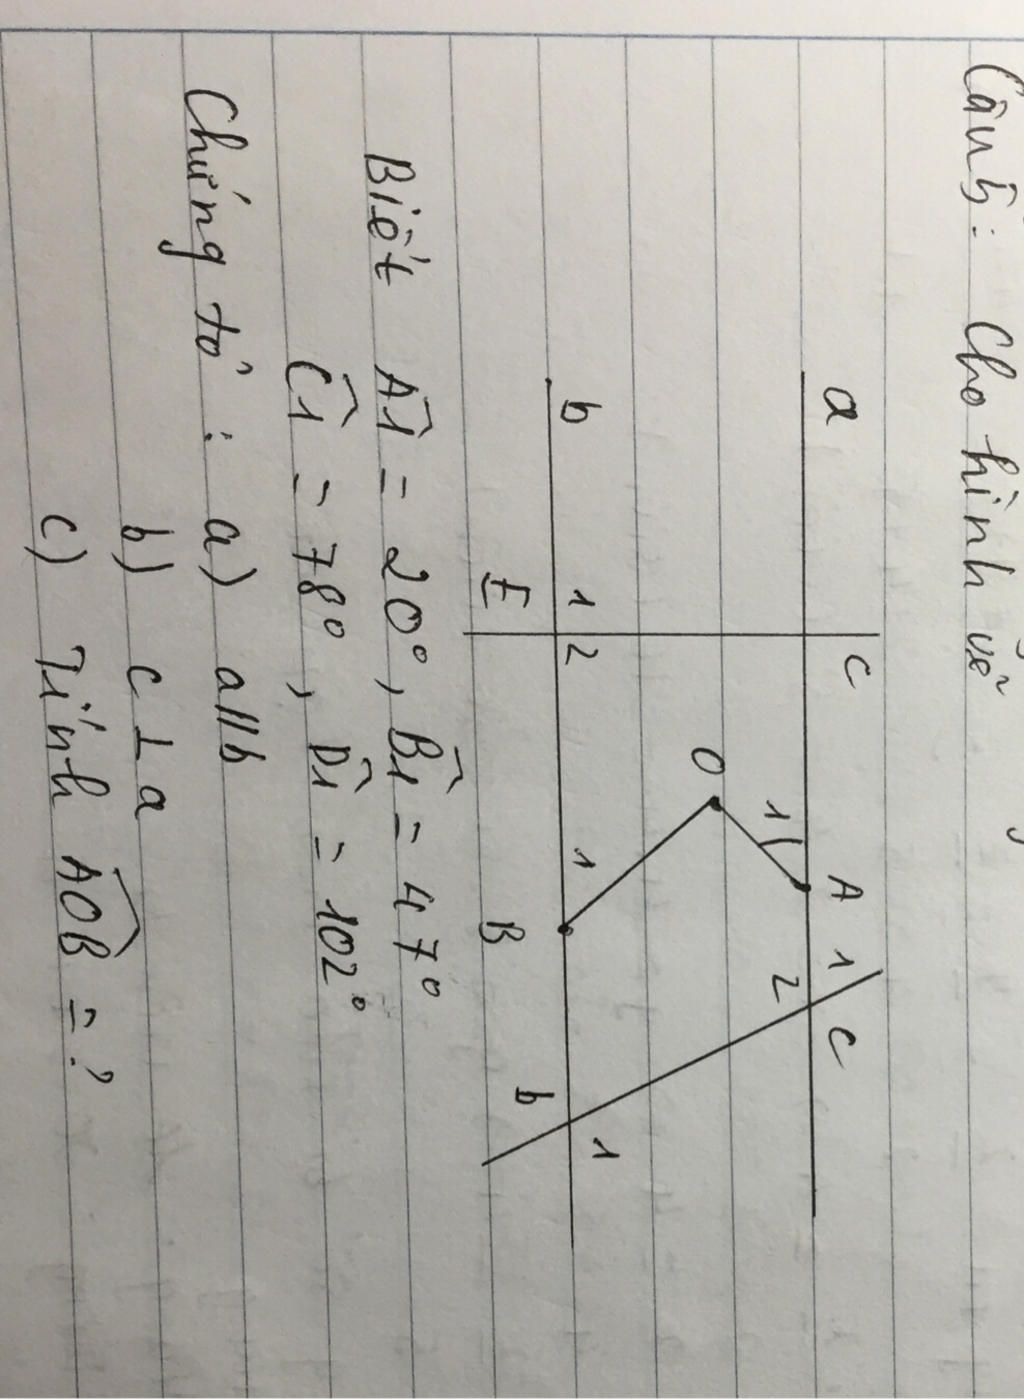 Câu 5: Cho hình vẽ
a
c
A
1
C
1
2
O
b
1
2
1
E
B
b
1
Biết Â1 = 20°, B̂1 = 47°
Ĉ1 = 78°, D̂1 = 102°
Chứng tỏ : a) a//b
b) c ⊥ a
c) Tính AÔB = ?